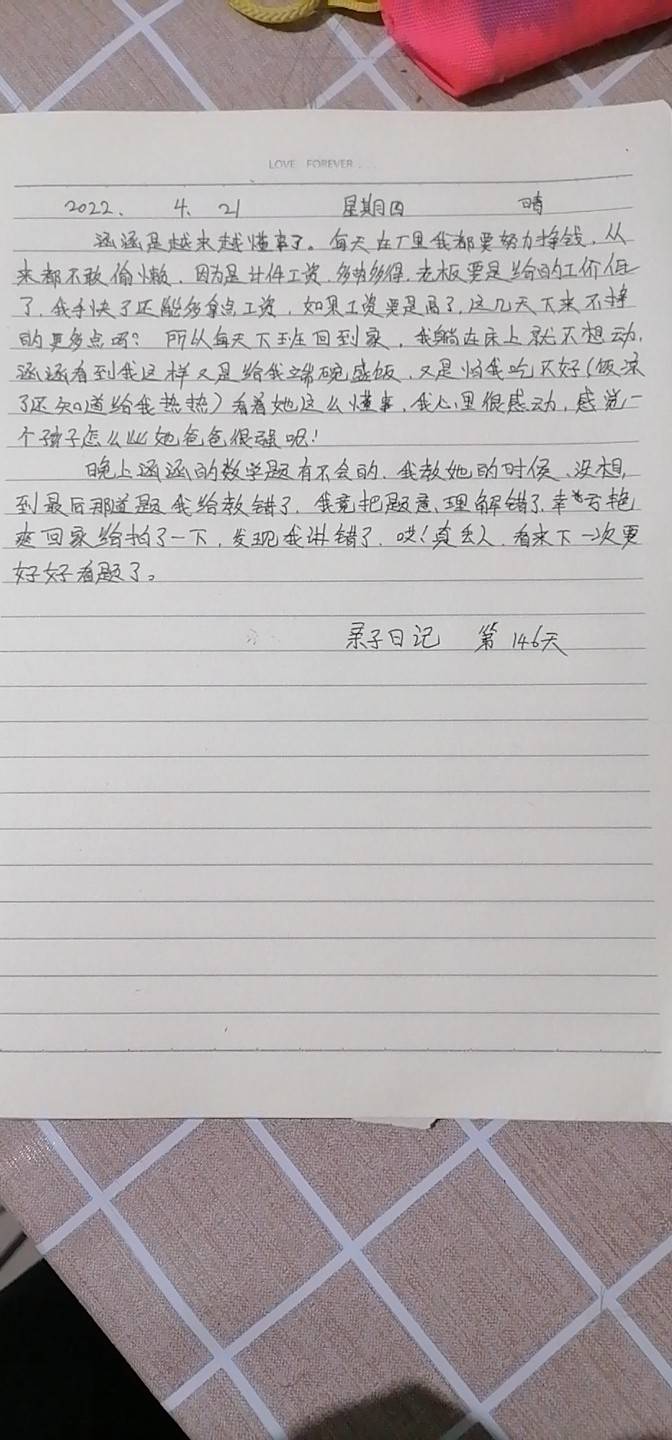 LOVE FOREVER...
2022. 4. 21 星期四 晴
涵涵是越来越懂事了。每天在厂里我都要努力挣钱，从
来都不敢偷懒，因为是计件工资，多劳多得，老板要是给的工价低
了，我手快了还能多拿点工资，如果工资要是高了，这几天下来不挣
的更多点吗？所以每天下班回到家，我躺在床上就不想动，
涵涵看到我这样又是给我端碗盛饭，又是怕我吃不好（饭凉
了还知道给我热热）看着她这么懂事，我心里很感动，感觉一
个孩子怎么比她爸爸很强呢！
晚上涵涵的数学题有不会的，我教她的时候，没想
到最后那道题我给教错了，我竟把题意理解错了，幸亏艳
爽回家给拍了一下，发现我讲错了，哎！真丢人，看来下一次要
好好看题了。
亲子日记 第146天